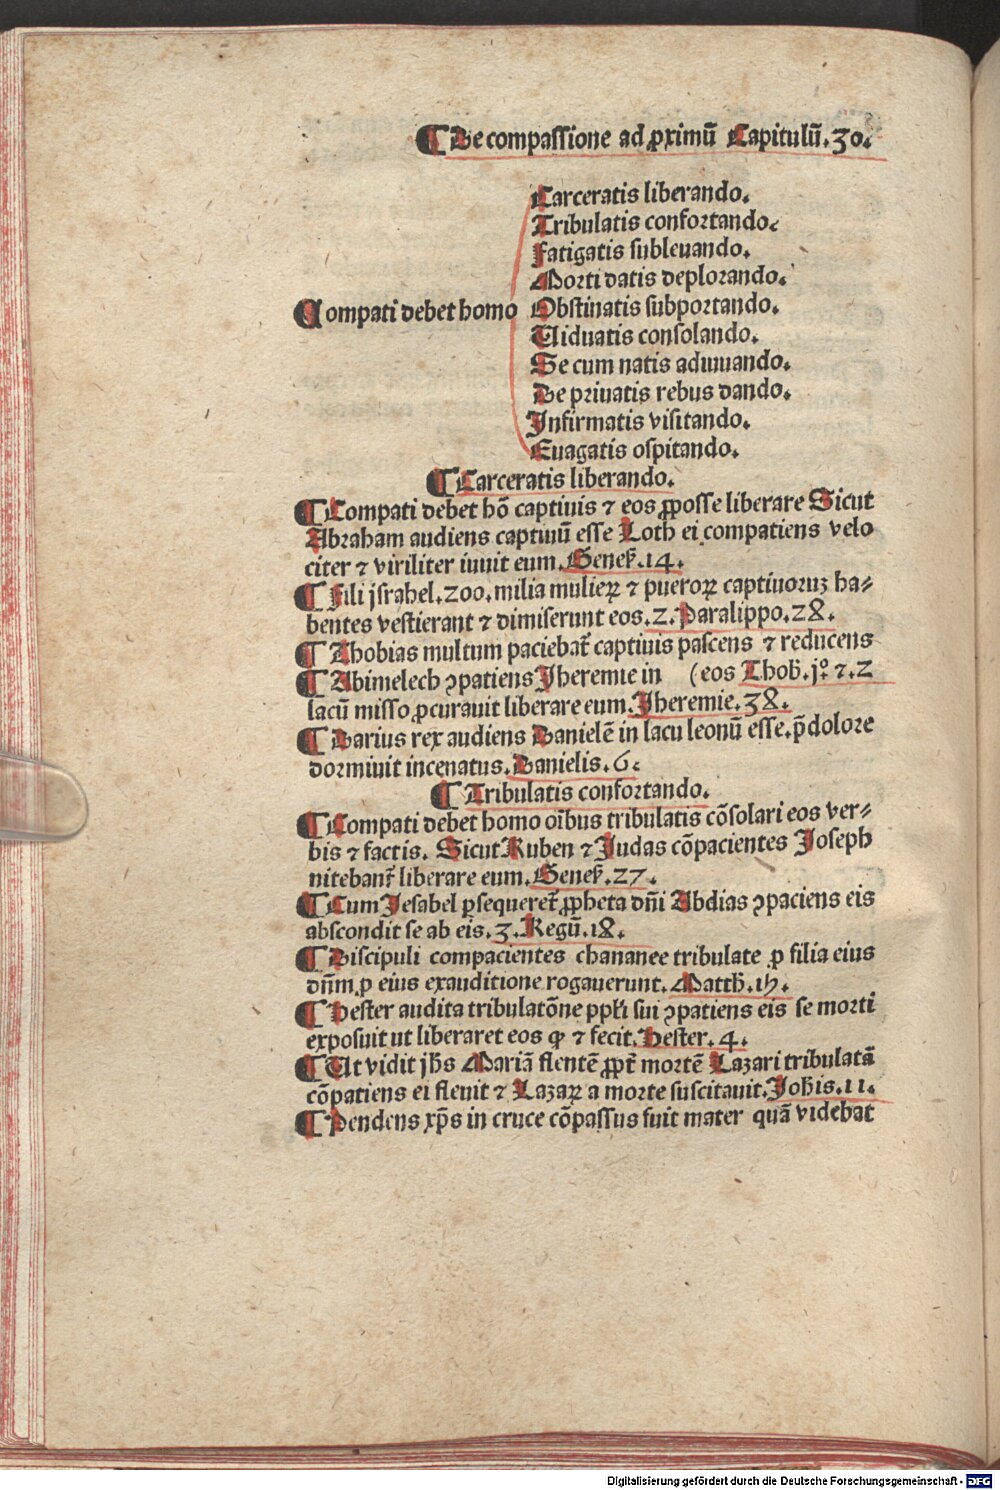 ¶ De compassione ad ꝓximū Capitulū.30.
Carceratis liberando.
Tribulatis confortando.
Fatigatis subleuando.
Morti datis deplorando.
Compati debet homo Obstinatis subportando.
Uiduatis consolando.
Se cum natis adiuuando.
De priuatis rebus dando.
Infirmatis visitando.
Euagatis ospitando.
¶ Carceratis liberando.
¶ Compati debet hō captiuis ⁊ eos ꝓposse liberare Sicut
Abraham audiens captiuū esse Loth ei compatiens velo
citer ⁊ viriliter iuuit eum. Geneẜ.14.
¶ Fili jsrahel.200.milia mulieꝝ ⁊ pueroꝝ captiuoruꝫ ha⸗
bentes vestierant ⁊ dimiserunt eos.2.Paralippo.28.
¶ Thobias multum paciebat᷑ captiuis pascens ⁊ reducens
¶ Abimelech ꝯpatiens Jheremie in (eos Thob̄.jº ⁊.2
lacū misso ꝓcurauit liberare eum. Jheremie.38.
¶ Darius rex audiens Danielē in lacu leonū esse.p̄dolore
dormiuit incenatus. Danielis.6.
¶ Tribulatis confortando.
¶ Compati debet homo oībus tribulatis cōsolari eos ver⸗
bis ⁊ factis. Sicut Ruben ⁊ Judas cōpacientes Joseph
nitebant᷑ liberare eum. Geneẜ.27.
¶ Cum Jesabel ꝑsequeret᷑ ꝓpheta dn̄i Abdias ꝯpaciens eis
abscondit se ab eis.3.Regū.18.
¶ Discipuli compacientes chananee tribulate ꝓ filia eius
dn̄m ꝓ eius exauditione rogauerunt. Matth̄.15.
¶ Hester audita tribulatōne ppl̄i sui ꝯpatiens eis se morti
exposuit ut liberaret eos ꝙ ⁊ fecit. Hester.4.
¶ Ut vidit jh̄s Mariā flentē ꝓpt᷑ mortē Lazari tribulatā
cōpatiens ei fleuit ⁊ Lazaꝝ a morte suscitauit. Joh̄is.11.
¶ Pendens xp̄s in cruce cōpassus fuit mater quā videbat
Digitalisierung gefördert durch die Deutsche Forschungsgemeinschaft - DFG